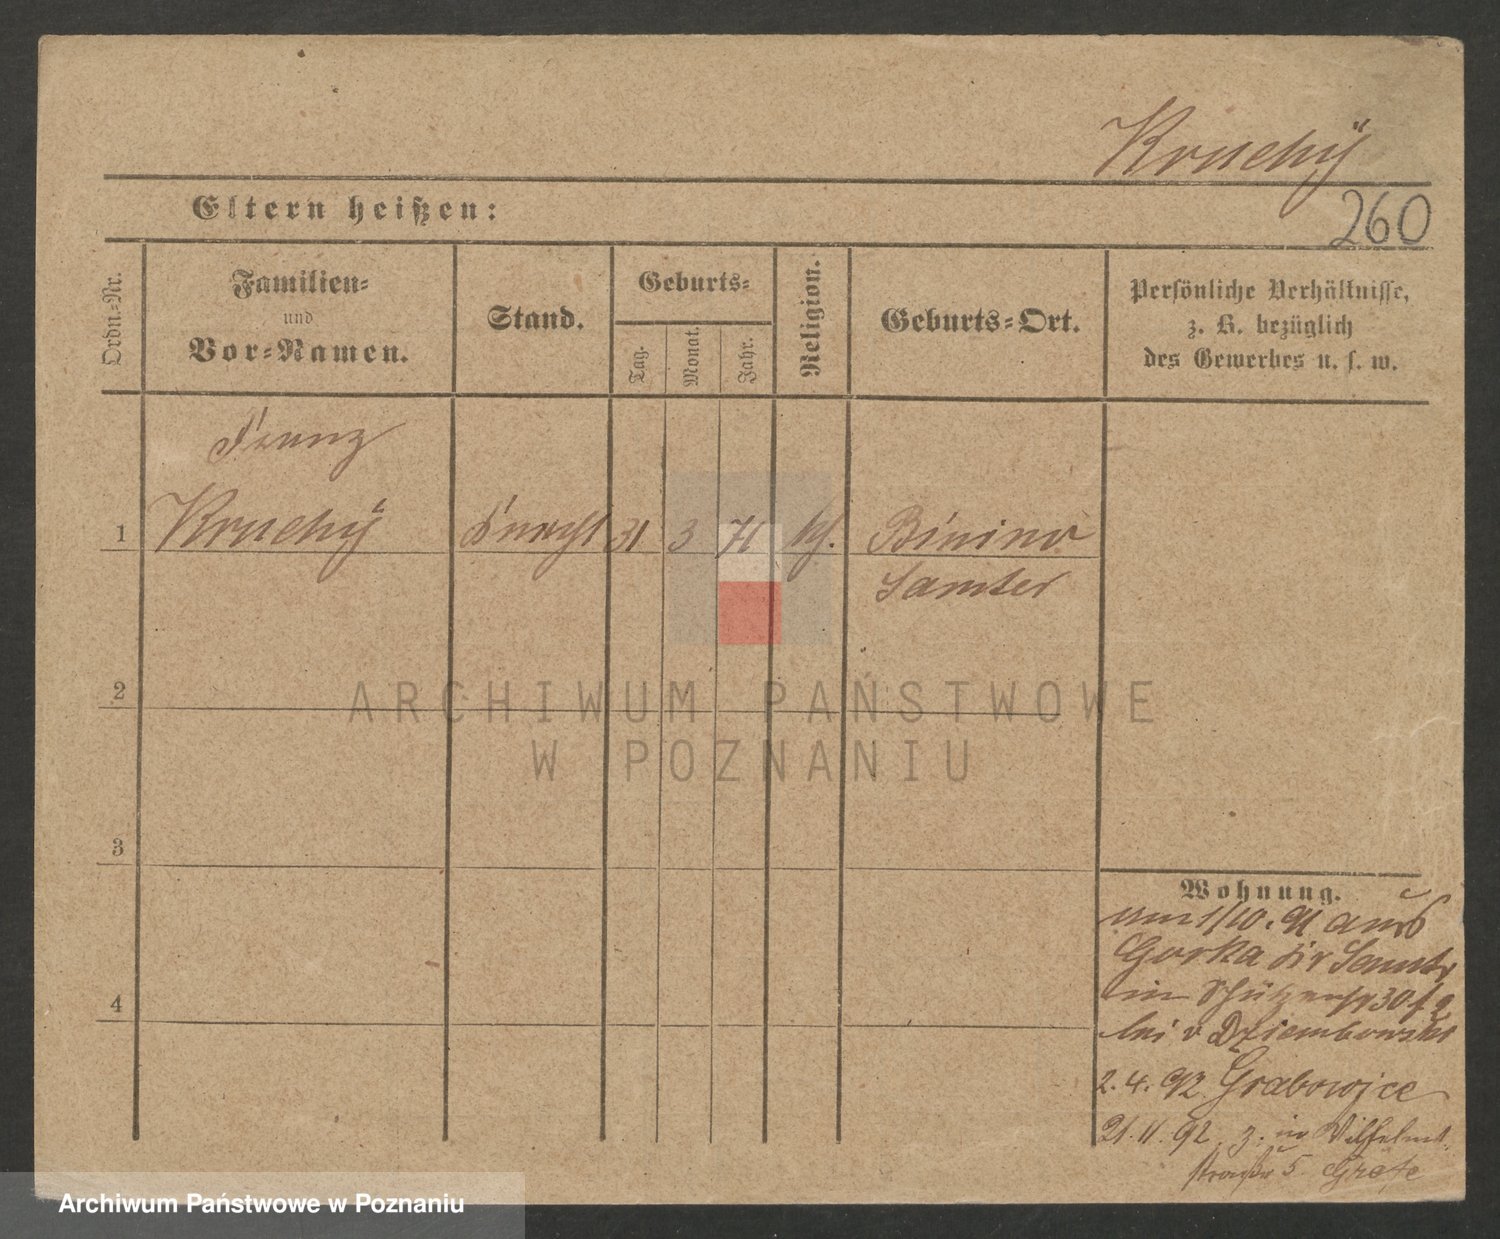 Kruchÿ
260
Eltern heißen:
Ordn.-Nr.
Familien-
und
Vor-Namen.
Stand.
Geburts-
Tag.
Monat.
Jahr.
Religion.
Geburts-Ort.
Persönliche Verhältnisse,
z. B. bezüglich
des Gewerbes u. s. w.
Franz
1 Kruchÿ Knecht 31 3 71 kth. Binino
Samter
2
3
4
Wohnung.
am 1/10. 91 aus
Gorka Kr Samter
in Schützenstr 30
bei v Dziembowski
2. 4. 92 Grabowice
21. 11. 92 z. in Wilhelm
straße 5.
ARCHIWUM PAŃSTWOWE
W POZNANIU
Archiwum Państwowe w Poznaniu